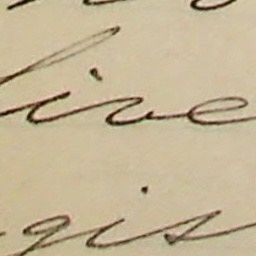 live
gis